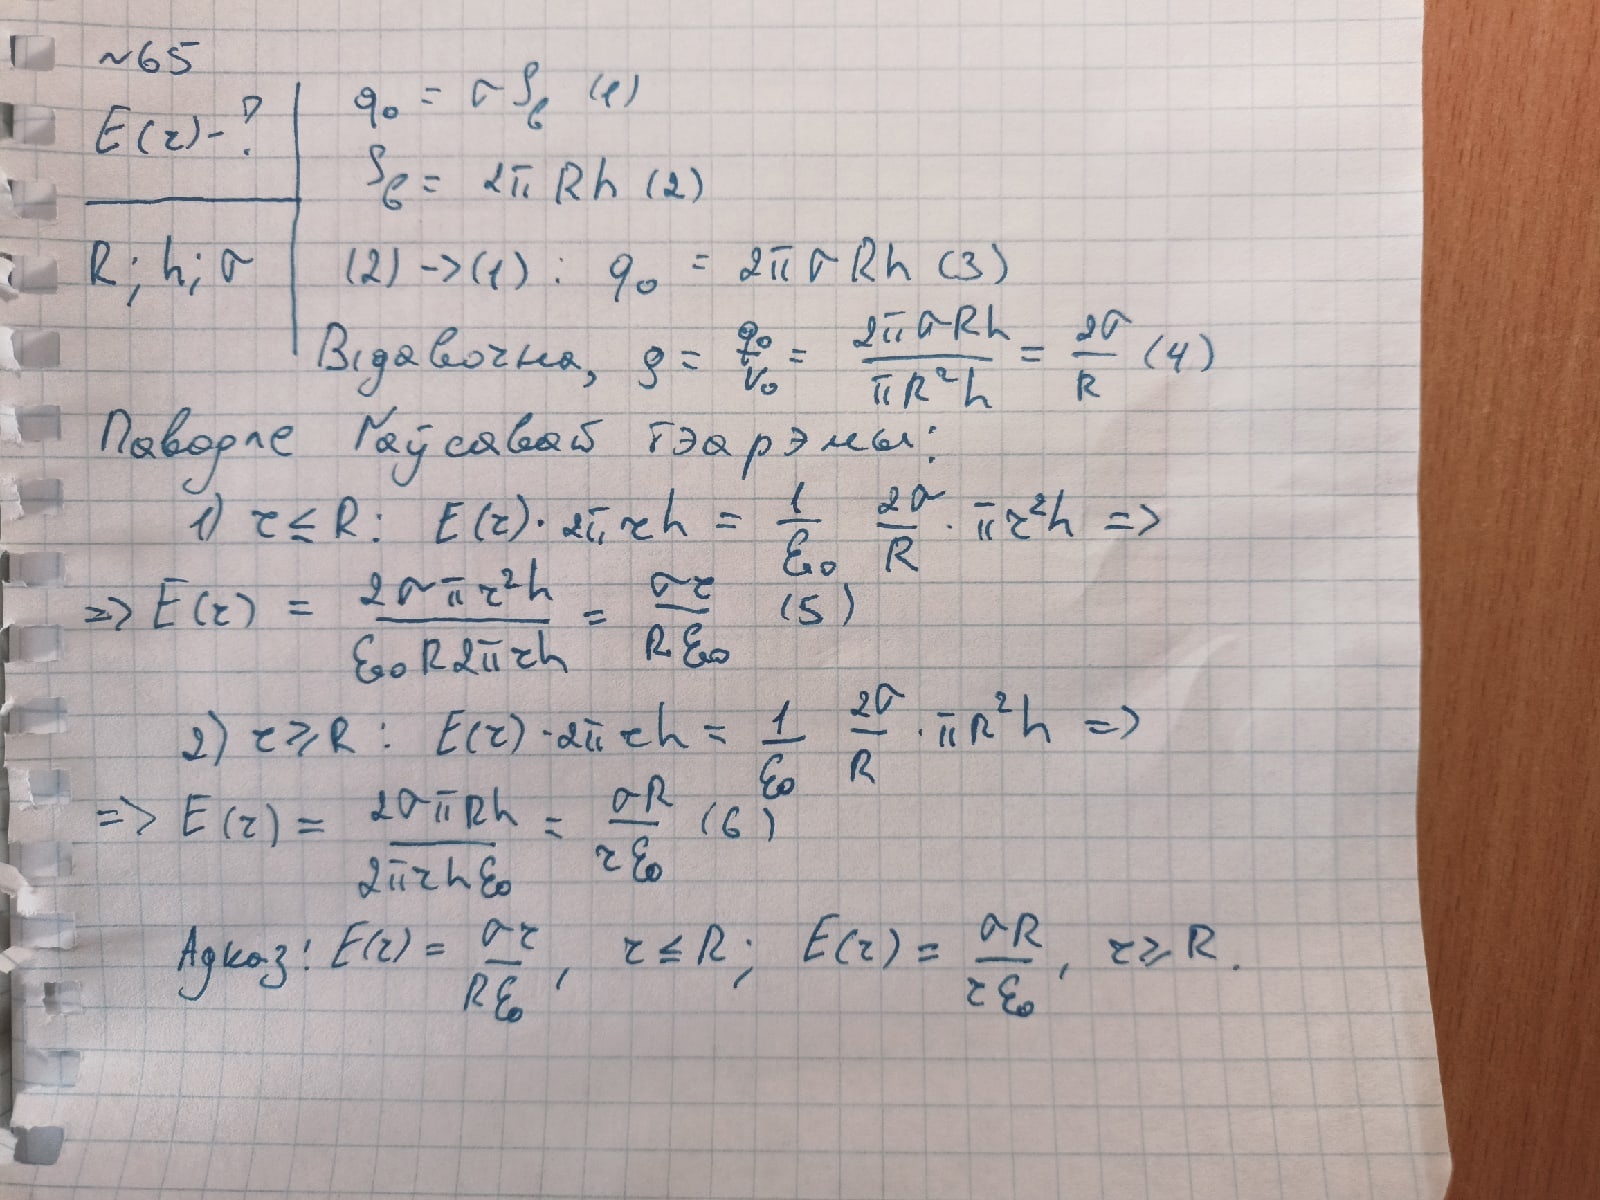 ~65
E(r)-?
R; h; σ
q₀ = σ Sб (1)
Sб = 2π Rh (2)
(2) -> (1) : q₀ = 2π σ Rh (3)
Відавочна, ρ = q₀/V₀ = 2πσRh/πR²h = 2σ/R (4)
Паводле Гаўсавай тэарэмы:
1) r ≤ R: E(r)·2π rh = 1/ε₀ 2σ/R · πr²h =>
=> E(r) = 2σπr²h/ε₀R2πrh = σr/Rε₀ (5)
2) r ≥ R : E(r)·2π rh = 1/ε₀ 2σ/R · πR²h =>
=> E(r) = 2σπRh/2πrhε₀ = σR/rε₀ (6)
Адказ: E(r) = σr/Rε₀, r ≤ R; E(r) = σR/rε₀, r ≥ R.